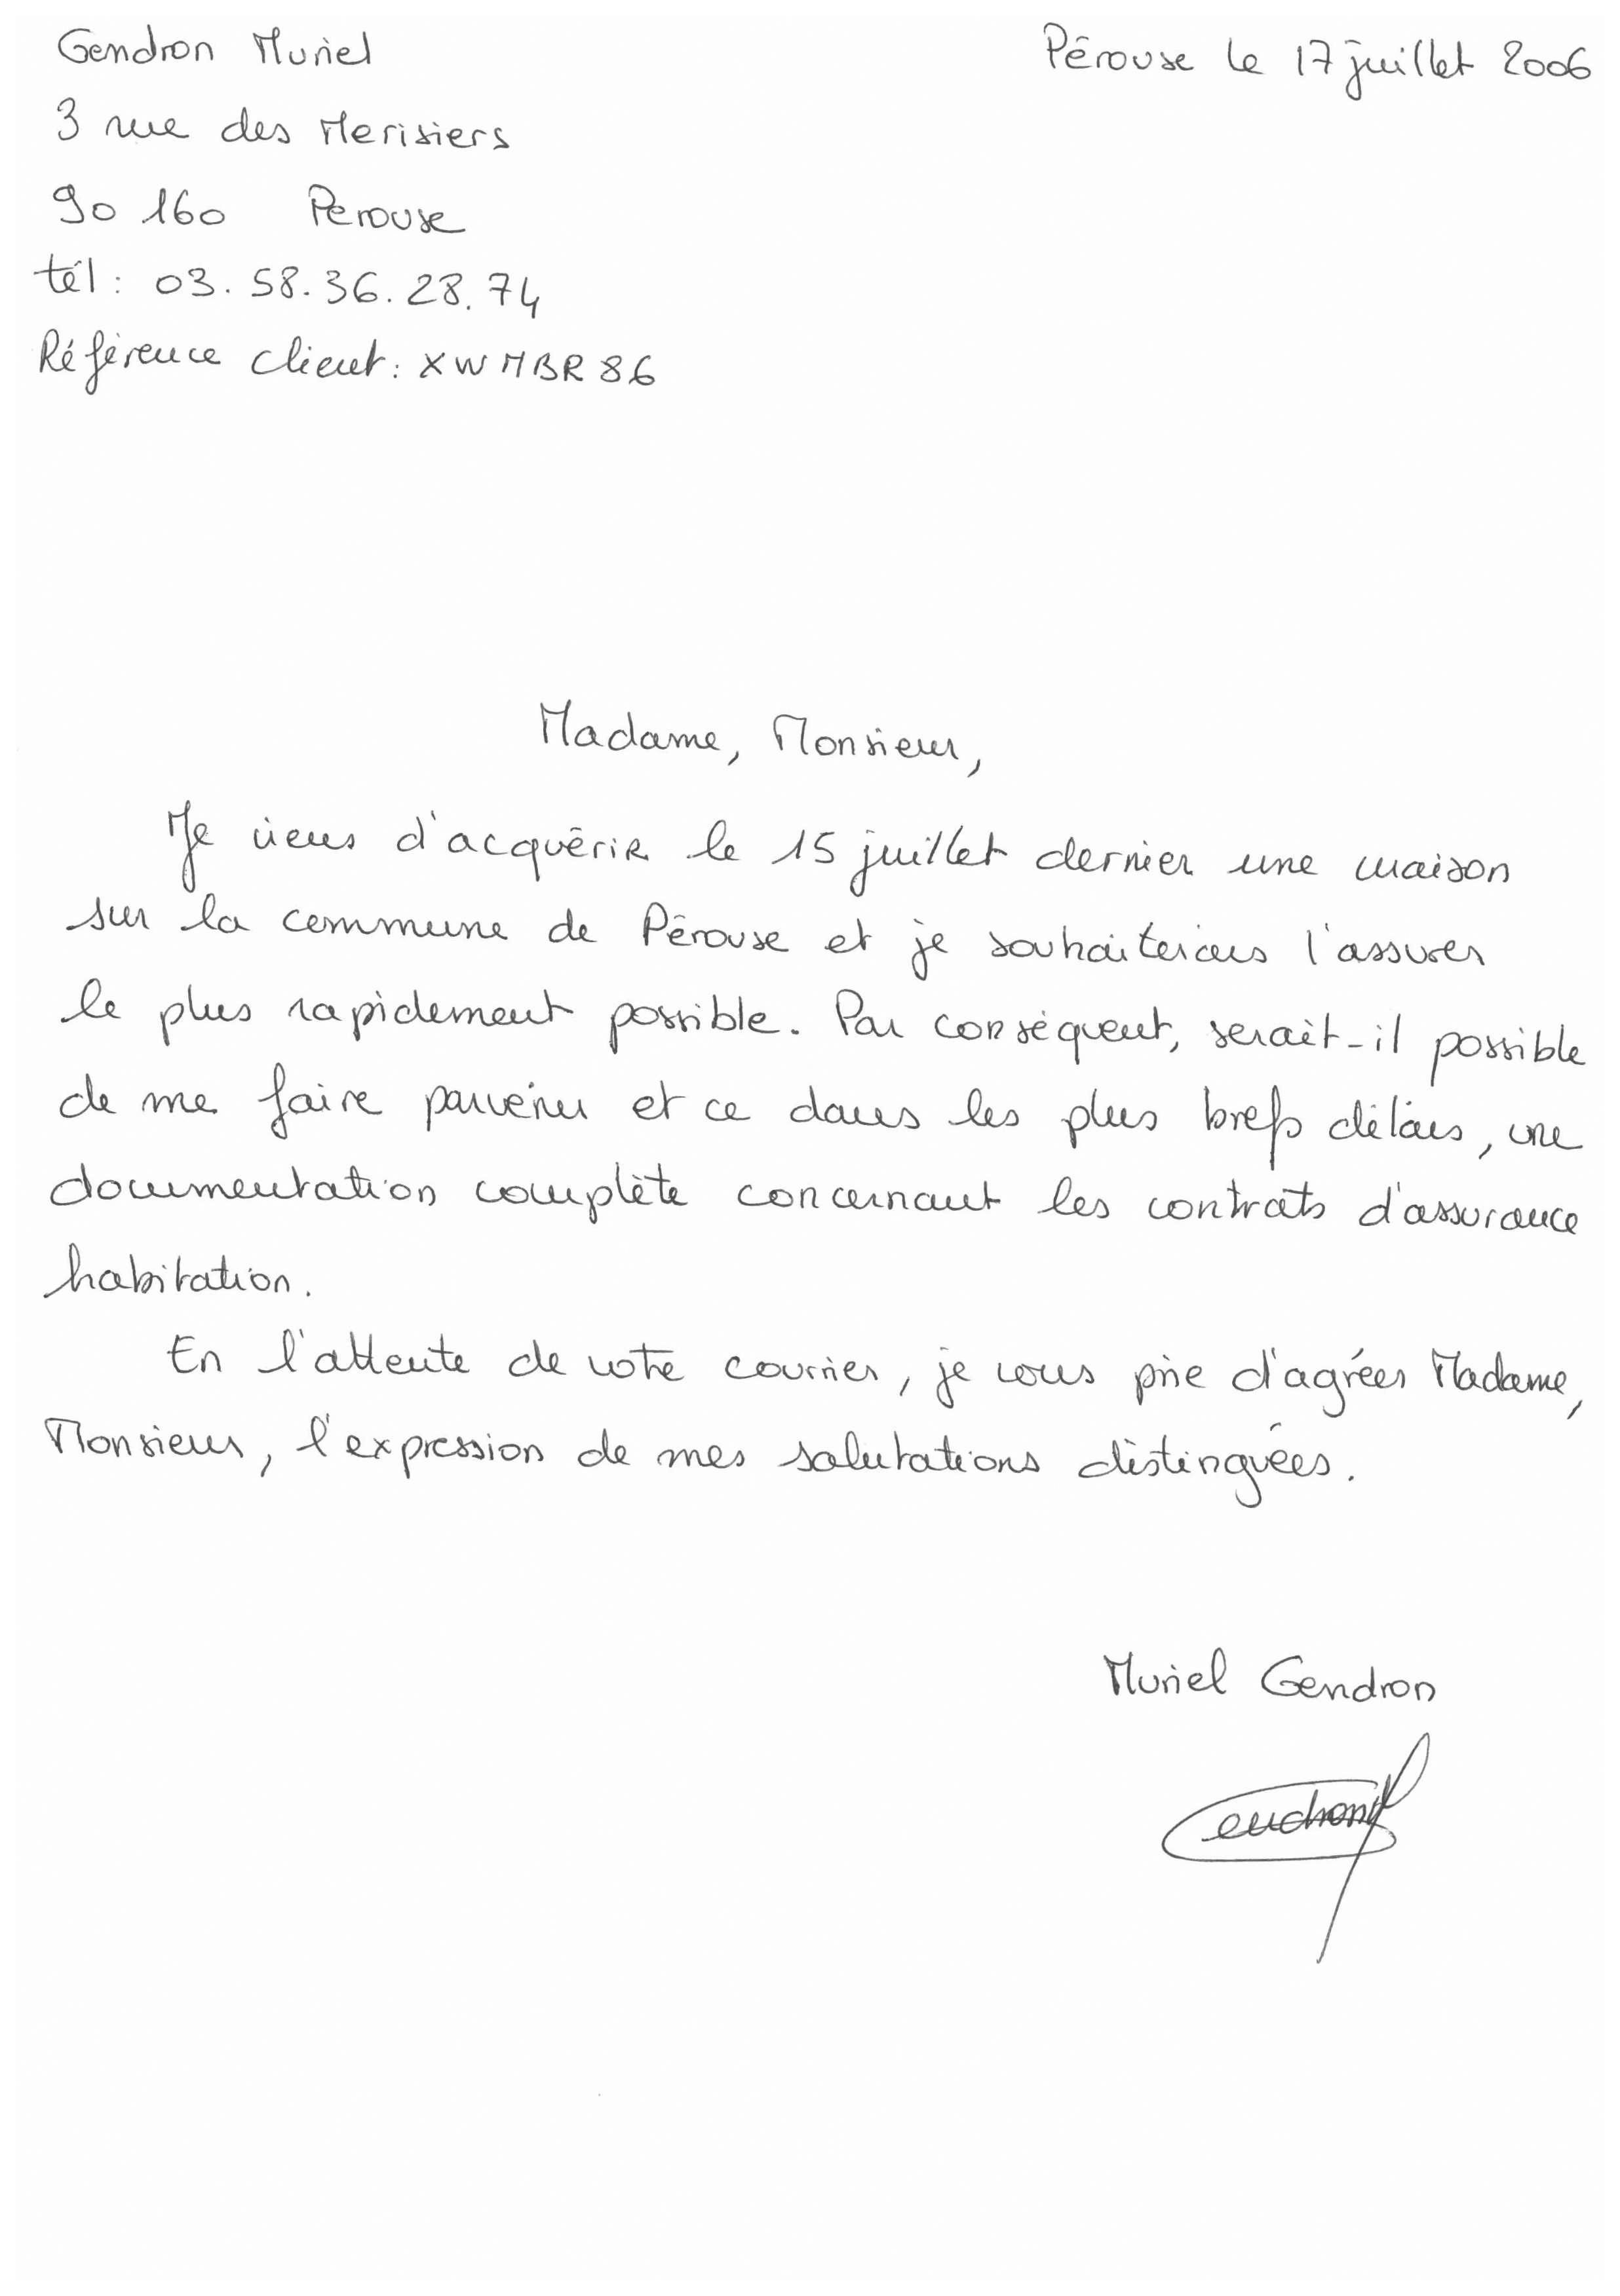 Gendron Muriel
Pérouse le 17 juillet 2006
3 rue des Merisiers
90 160 Perouse
tél : 03.58.36.28.74
Référence client : XWMBR86
Madame, Monsieur,
Je viens d'acquérir le 15 juillet dernier une maison
sur la commune de Pérouse et je souhaiterais l'assurer
le plus rapidement possible. Par conséquent, serait-il possible
de me faire parvenir et ce dans les plus brefs délais, une
documentation complète concernant les contrats d'assurance
habitation.
En l'attente de votre courrier, je vous prie d'agréer Madame,
Monsieur, l'expression de mes salutations distinguées.
Muriel Gendron